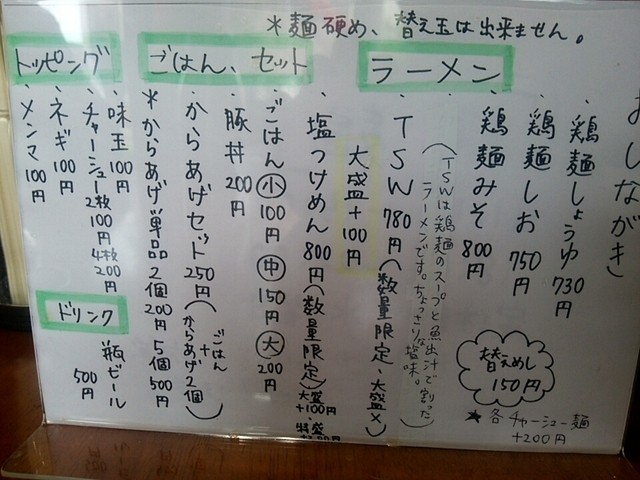 ＊麺硬め、替え玉は出来ません。
おしながき
ラーメン
・鶏麺しょうゆ 730円
・鶏麺しお 750円
・鶏麺みそ 800円
・TSW 780円(数量限定、大盛×)
(TSWは鶏麺のスープと魚出汁で割った
ラーメンです。ちょっさりな塩味。)
大盛+100円
・塩つけめん 800円(数量限定)大盛+100円
特盛
替えめし
150円
★各チャーシュー麺
+200円
ごはん、セット
・ごはん 小 100円 中 150円 大 200円
・豚丼 200円
・からあげセット 250円(ごはん+からあげ2個)
＊からあげ単品 2個200円 5個500円
トッピング
・味玉100円
・チャーシュー2枚100円 4枚200円
・ネギ 100円
・メンマ 100円
ドリンク
瓶ビール
500円